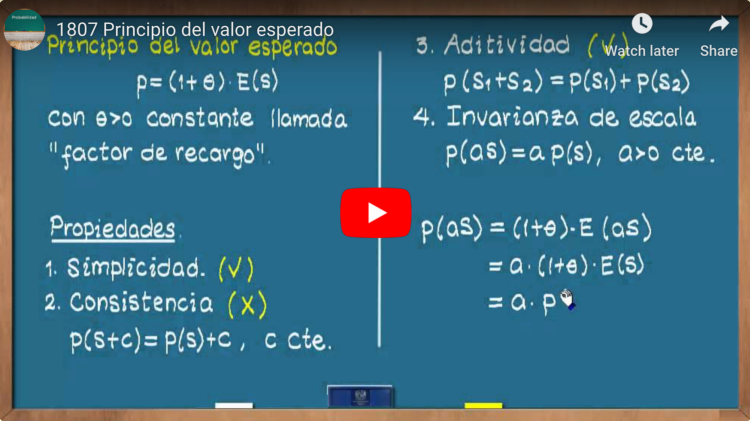 Probabilidad
1807 Principio del valor esperado
Watch later
Share
Principio del valor esperado
p=(1+θ)·E(S)
con θ>0 constante llamada
"factor de recargo".
Propiedades.
1. Simplicidad. (√)
2. Consistencia (X)
p(S+c)=p(S)+c, c cte.
3. Aditividad (√)
p(S1+S2)=p(S1)+p(S2)
4. Invarianza de escala
p(aS)=a p(S), a>0 cte.
p(aS) = (1+θ)·E (aS)
= a·(1+θ)·E(S)
= a·p